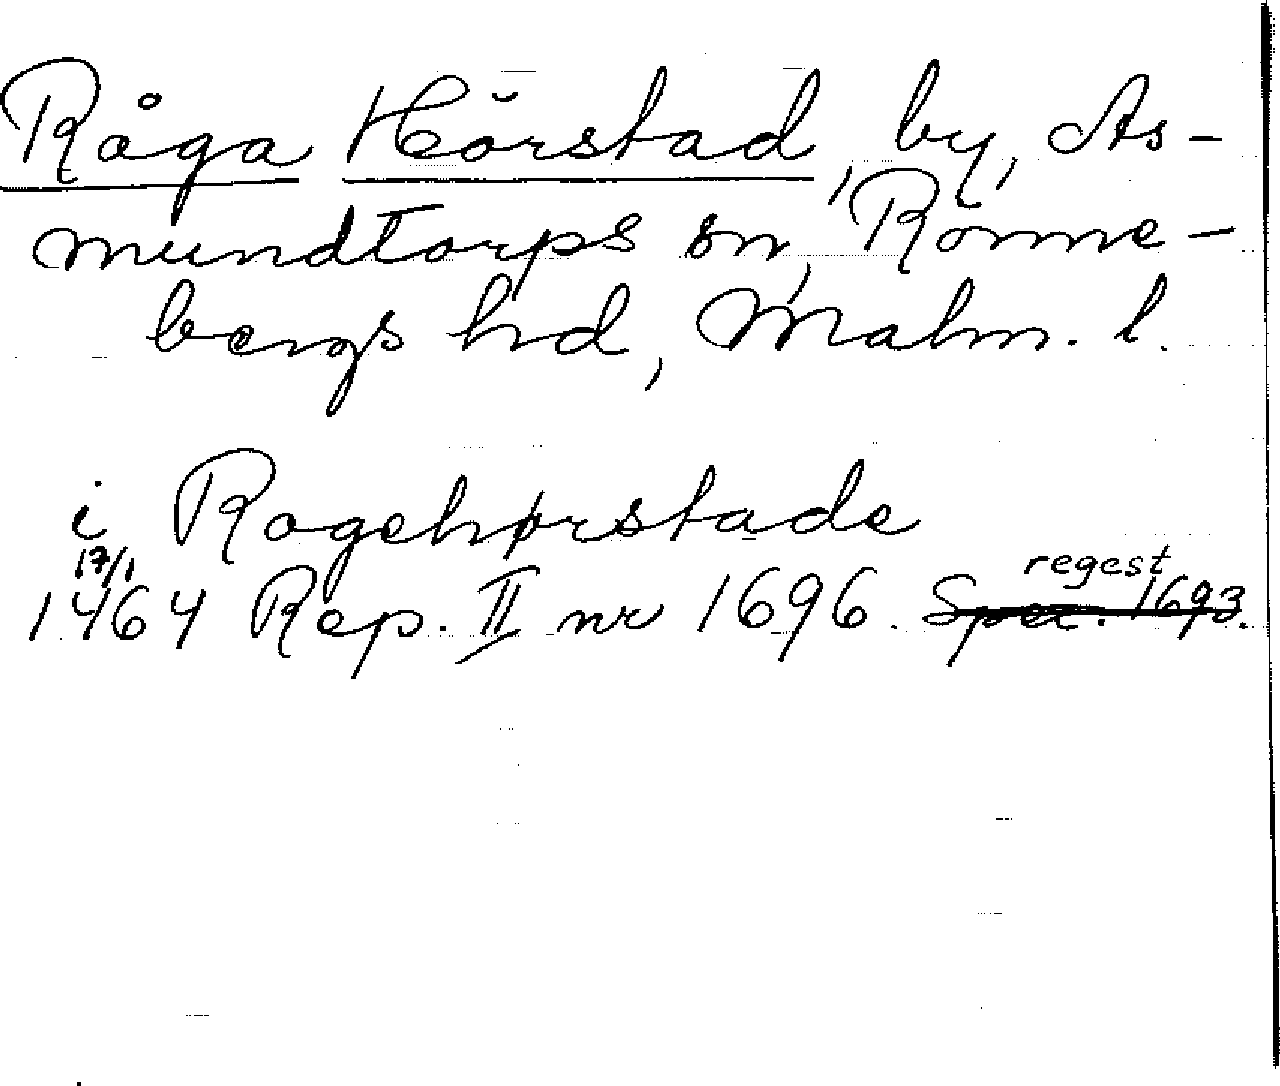 Råga Hörstad, by, As-
mundtorps sn, Rönne-
bergs hd, Malm. l.
i Rogehørstade
17/1 regest
1464 Rep. II nr 1696. Spec. 1693.